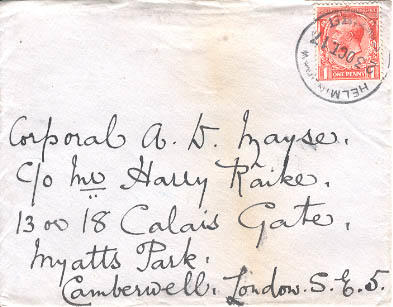 3 OC 17
HELMIN
ONE PENNY
Corporal A. D. Mayse.
C/o Mr Harry Raike.
13 or 18 Calais Gate.
Myatts Park.
Camberwell. London. S. E. 5.